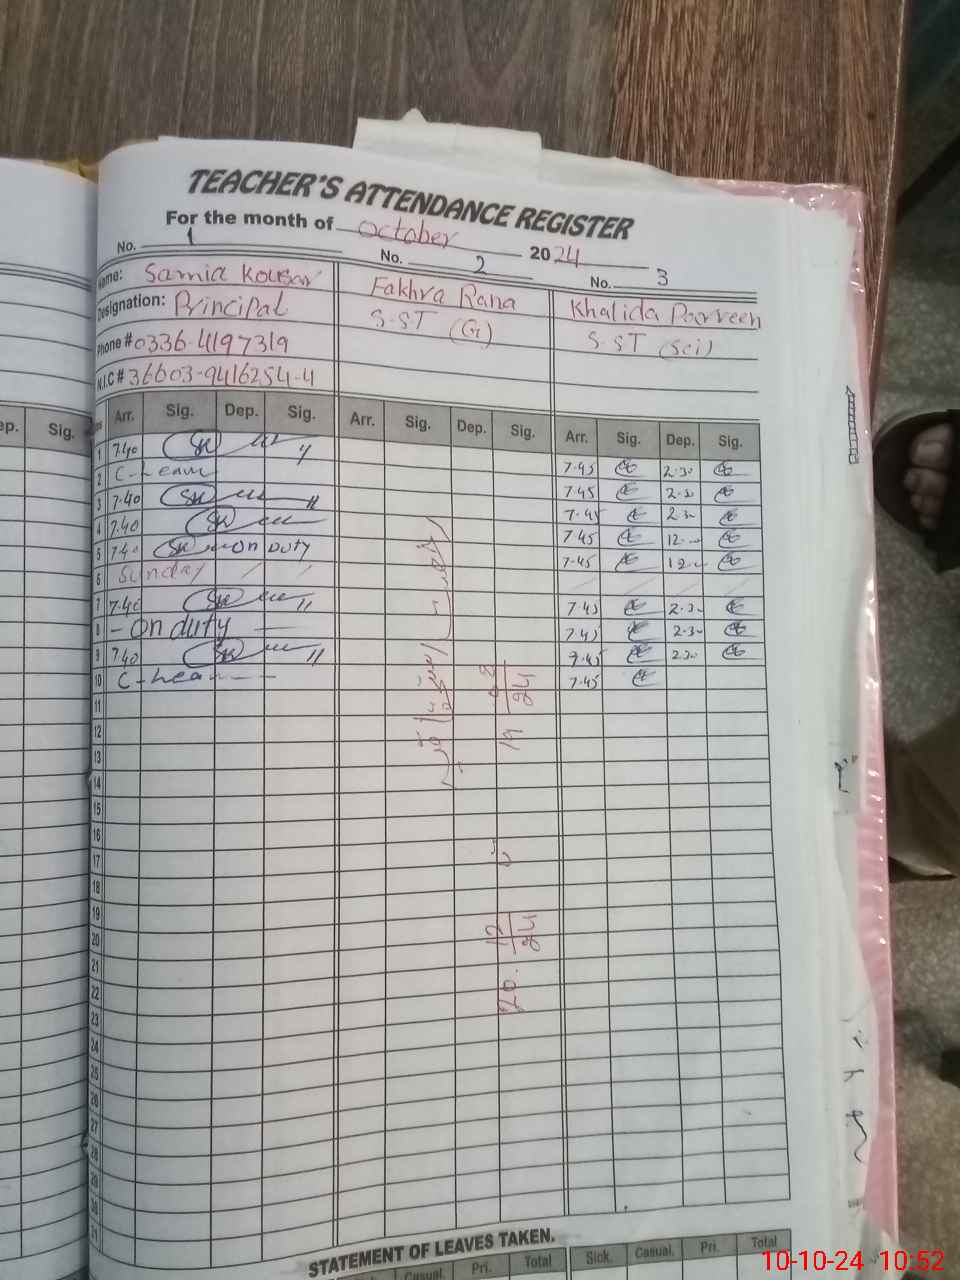 TEACHER'S ATTENDANCE REGISTER
For the month of October 2024
No. 1 No. 2 No. 3
Name: Samia Kousar Fakhra Rana Khalida Parveen
Designation: Principal S.ST (G) S.ST (Sci)
Phone # 0336-4197319
N.I.C # 36603-9416254-4
ep. Sig. Arr. Sig. Dep. Sig. Arr. Sig. Dep. Sig. Arr. Sig. Dep. Sig.
1 7.40 7.45 2.30
2 C-leave 7.45 2.30
3 7.40 7.45 2.30
4 7.40 7.45 12
5 7.40 on DUTY 7.45 12
6 Sunday
7 7.40 7.45 2.30
8 - on duty 7.45 2.30
9 7.40 7.45 2.30
10 C-leave 7.45
11
12
13
14
15
16
17
18
19
20
21
22
23
24
25
26
27
28
29
30
31
19 24
20. 12 24
STATEMENT OF LEAVES TAKEN.
Casual. Pri. Total Sick. Casual. Pri. Total
10-10-24 10:52